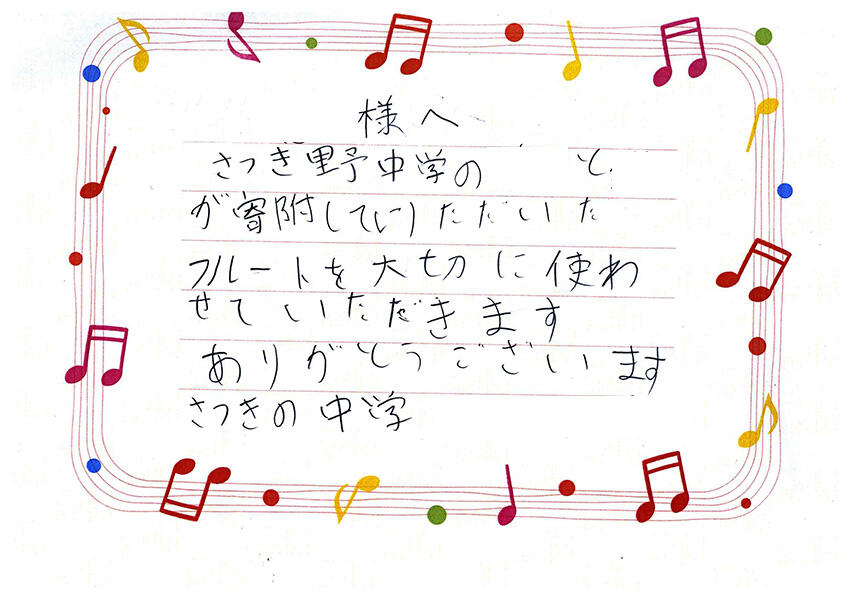 様へ
さつき里予中学の と
が寄附していただいた
フルートを大切に使わ
せていただきます
ありがとうございます
さつきの中学